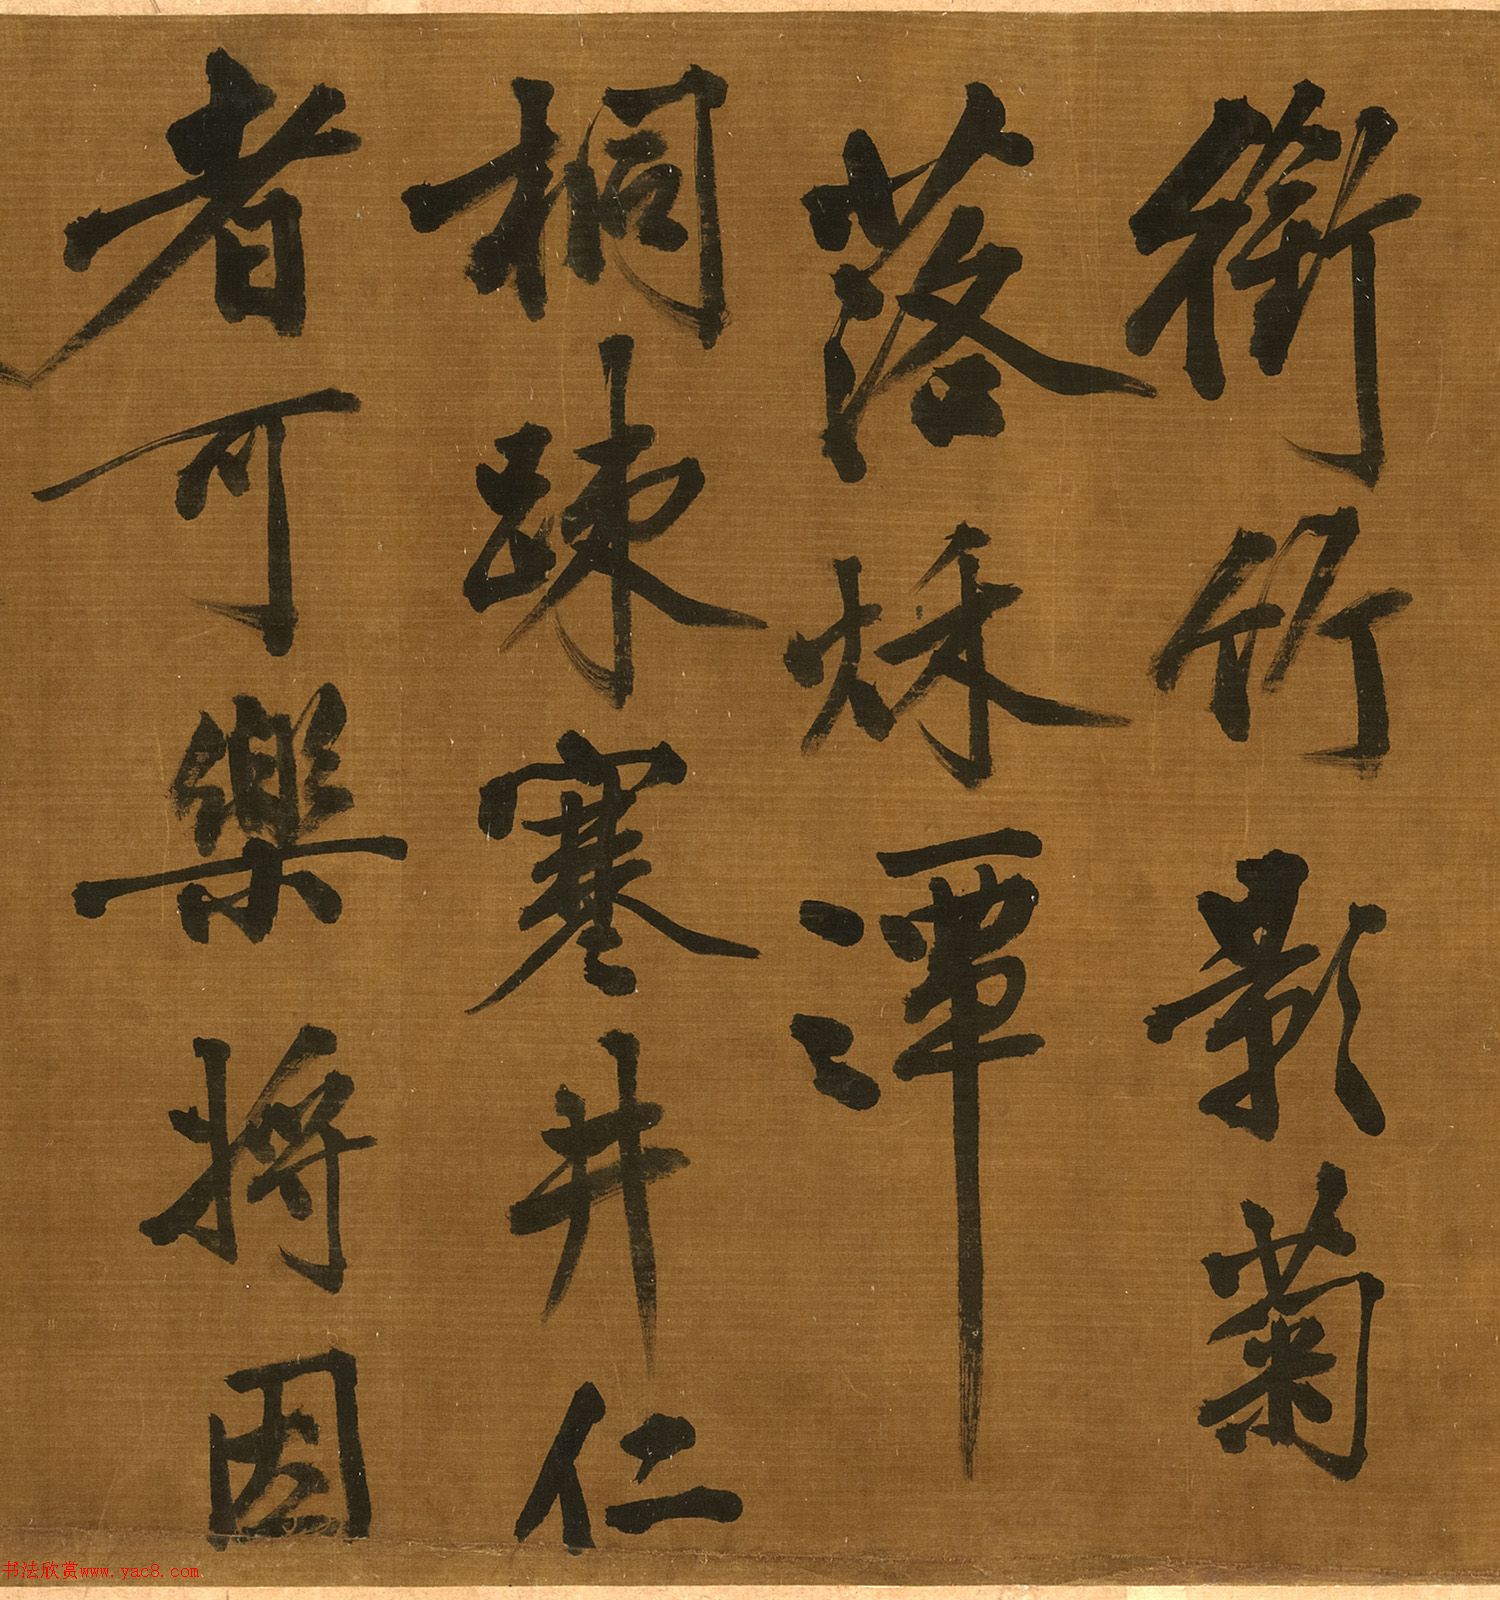 衔竹影菊
落秌潭
桐踈寒井仁
者可樂將因
书法欣赏www.yac8.com